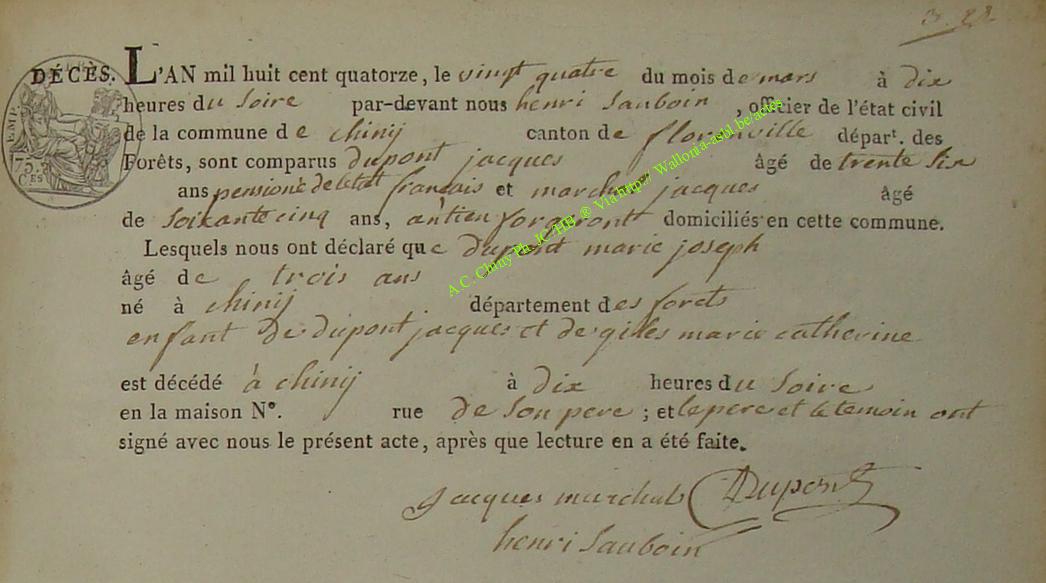 DÉCÈS. L'AN mil huit cent quatorze, le vingt quatre du mois de mars à dix
heures du soire par-devant nous henri sauboin, officier de l'état civil
de la commune de chinij canton de florenville départ. des
Forêts, sont comparus dupont jacques âgé de trente six
ans pensioné de letat francais et marchal jacques âgé
de soixante cinq ans, antien forgeront domiciliés en cette commune.
Lesquels nous ont déclaré que dupont marie joseph
âgé de trois ans
né à chinij département des forets
enfant de dupont jacques et de giles marie catherine
est décédé à chinij à dix heures du soire
en la maison N°. rue de son pere ; et le pere et le temoin ont
signé avec nous le présent acte, après que lecture en a été faite.
jacques marchal Dupont
henri sauboin
A.C. Chiny Ph. JC "HB" ® Via http:// Wallonia-asbl.be/actes
75.
CES